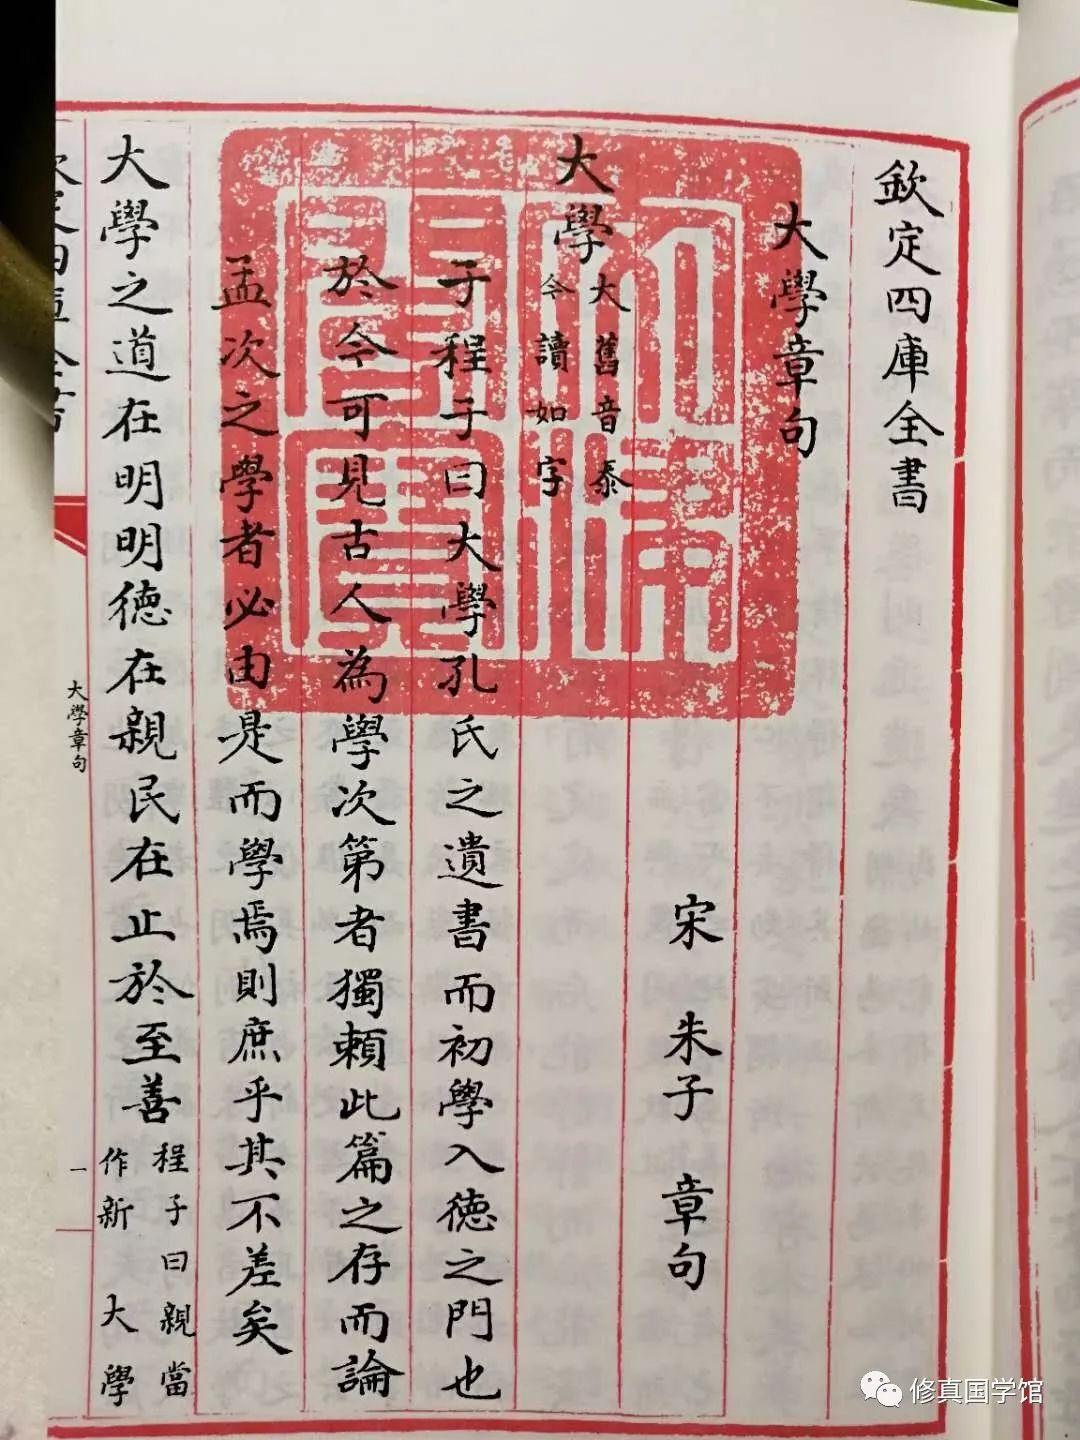 欽定四庫全書
大學章句
宋 朱子 章句
大學
大舊音泰
今讀如字
子程子曰大學孔氏之遺書而初學入徳之門也
於今可見古人為學次第者獨賴此篇之存而論
孟次之學者必由是而學焉則庶乎其不差矣
大學之道在明明徳在親民在止於至善
程子曰親當
作新 大學
大學章句
一
文淵閣寶
修真国学馆